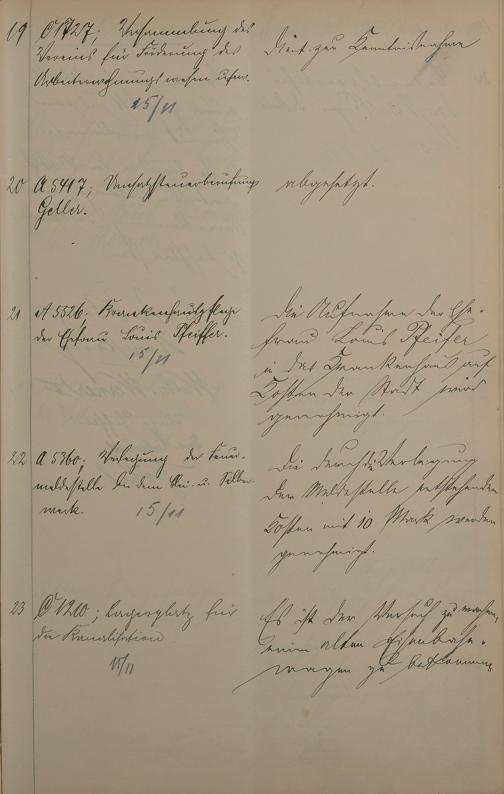 19 C 1727; Versammlung des
Vereins für Förderung des
Arbeiterwohnungswesen usw.
15/11
Dient zur Kenntnisnahme
20 A 5417; Umsatzsteuerberufung
Geller.
abgesetzt.
21 A 5526. Krankenhauspflege
der Ehefrau Louis Pfeiffer.
15/11
Die Aufnahme der Ehe-
frau Louis Pfeifer
in das Krankenhaus auf
Kosten der Stadt wird
genehmigt.
22 A 5360; Verlegung der Feuer-
meldestelle bei dem Blei- u. Silber-
werk.
15/11
Die durch die Verlegung
der Meldestelle entstehenden
Kosten mit 10 Mark werden
genehmigt.
23 C 1210; Lagerplatz für
die Kanalisation
15/11
Es ist der Versuch zu machen,
einen alten Eisenbahn-
wagen zu bekommen